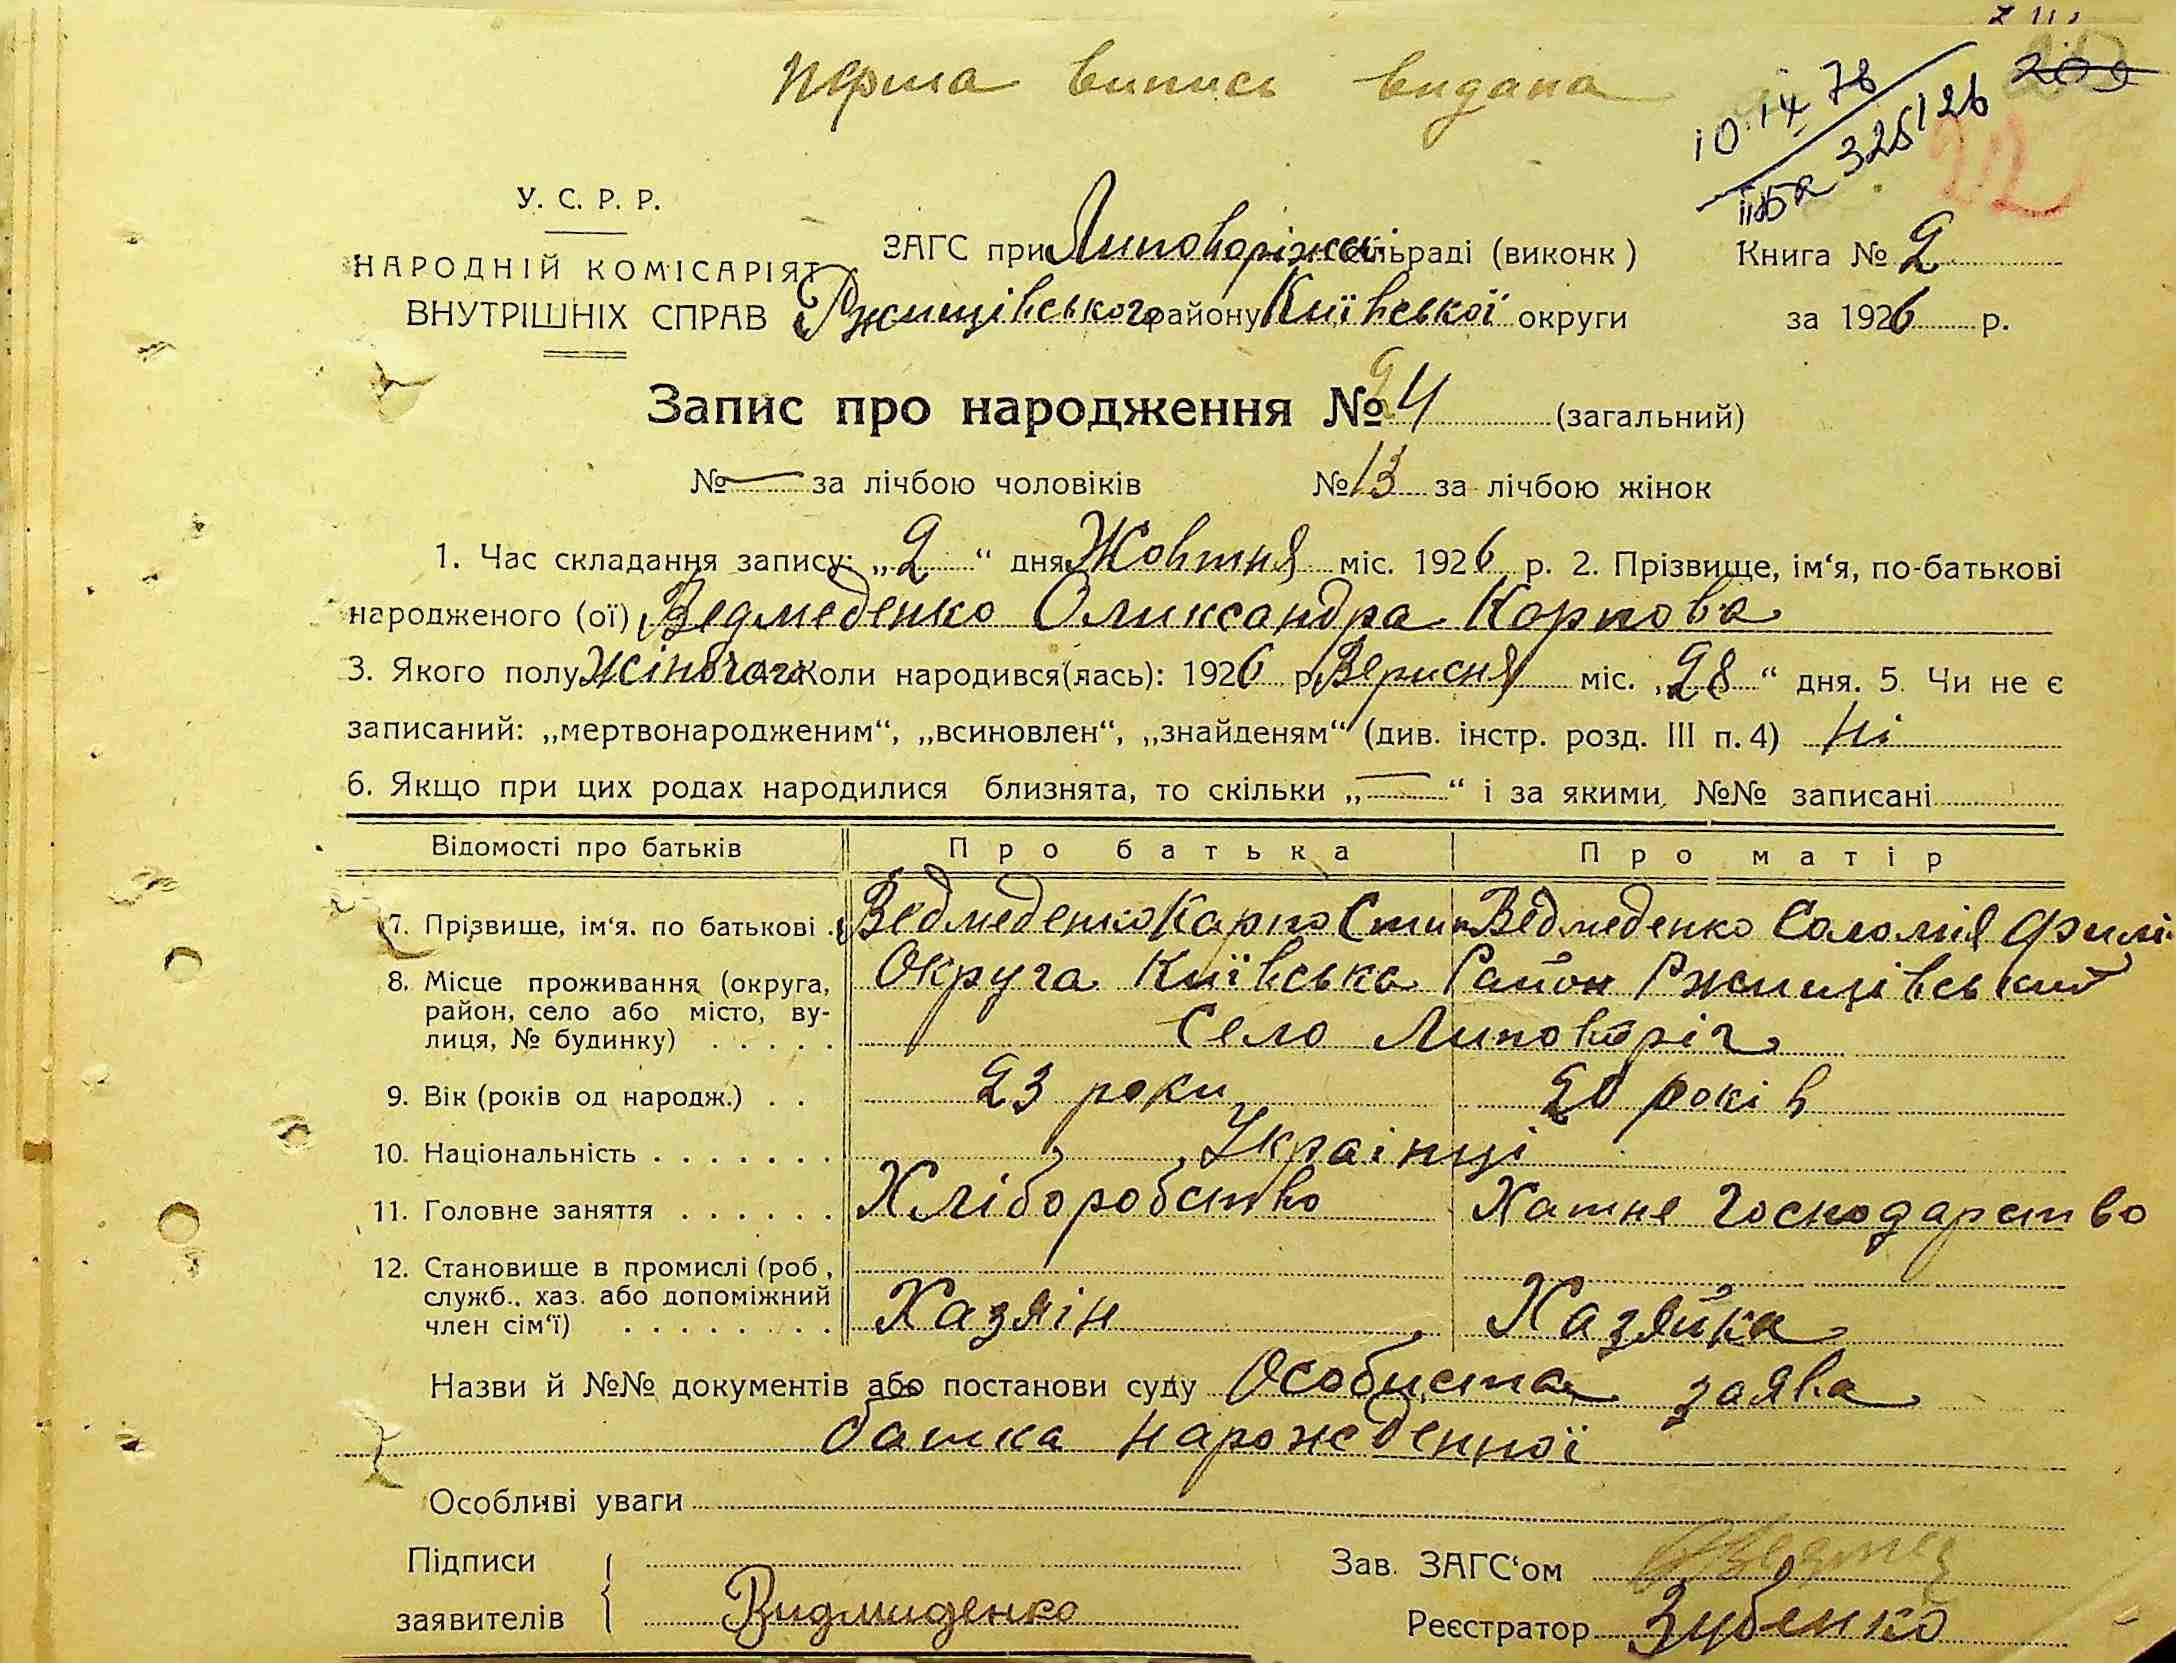 перша випись видана
10 IX 78
325126
209
212
У. С. Р. Р.
НАРОДНІЙ КОМІСАРІЯТ
ВНУТРІШНІХ СПРАВ
ЗАГС при Липоворіжсь сільраді (виконк)
Ржищівського району Київської округи
Книга № 2
за 1926 р.
Запис про народження № 24 (загальний)
№ — за лічбою чоловіків № 13 за лічбою жінок
1. Час складання запису: „2“ дня Жовтня міс. 1926 р. 2. Прізвище, ім‘я, по-батькові
народженого (ої) Ведмеденко Оликсандра Карпова
3. Якого полу Жіночога Коли народився(лась): 1926 р. Вересня міс. „28“ дня. 5. Чи не є
записаний: „мертвонародженим“, „всиновлен“, „знайденям“ (див. інстр. розд. III п. 4) Ні
6. Якщо при цих родах народилися близнята, то скільки „—“ і за якими №№ записані
Відомості про батьків Про батька Про матір
7. Прізвище, ім‘я. по батькові . Ведмеденко Карпо Стип Ведмеденко Соломія Филі
8. Місце проживання (округа, Округа Київська Район Ржищівський
район, село або місто, ву-
лиця, № будинку) . . . . . Село Липоворіг
9. Вік (років од народж.) . . 23 роки 20 років
10. Національність . . . . . . . Українці
11. Головне заняття . . . . . . Хліборобство Хатне Господарство
12. Становище в промислі (роб,
служб., хаз. або допоміжний
член сім‘ї) . . . . . . . . Хазяін Хазяйка
Назви й №№ документів або постанови суду Особиста заява
батка нарожденної
Особливі уваги
Підписи
заявителів Видмиденко
Зав. ЗАГС‘ом
Реєстратор Зубенко